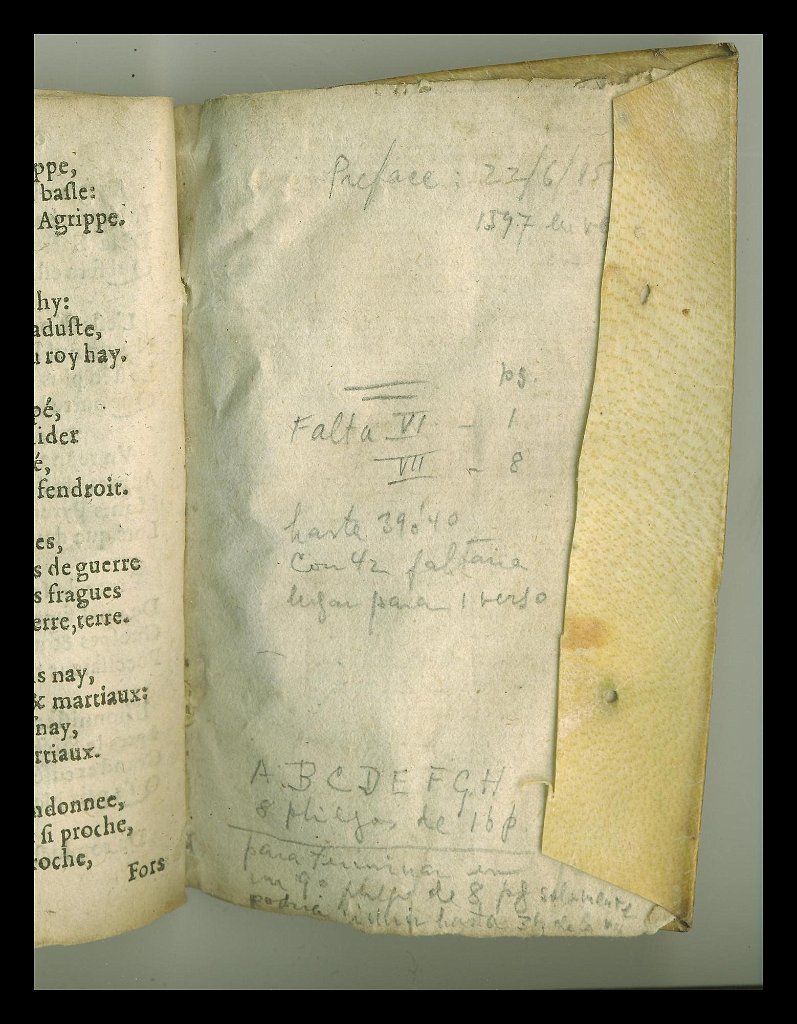 ppe,
baſle:
Agrippe.
hy:
aduſte,
roy hay.
pé,
ider
é,
fendroit.
es,
s de guerre
s fragues
erre, terre.
s nay,
& martiaux:
ſnay,
rtiaux.
ndonnee,
ſi proche,
roche,
Fors
Preface : 22/6/15
1597
pg.
Falta VI - 1
VII - 8
hasta 39 ó 40
con 42 faltaria
lugar para 1 verso
A B C D E F G H
8 pliegos de 16 p
para terminar en
un 9º pliego de 8 pg solamente
podria hasta